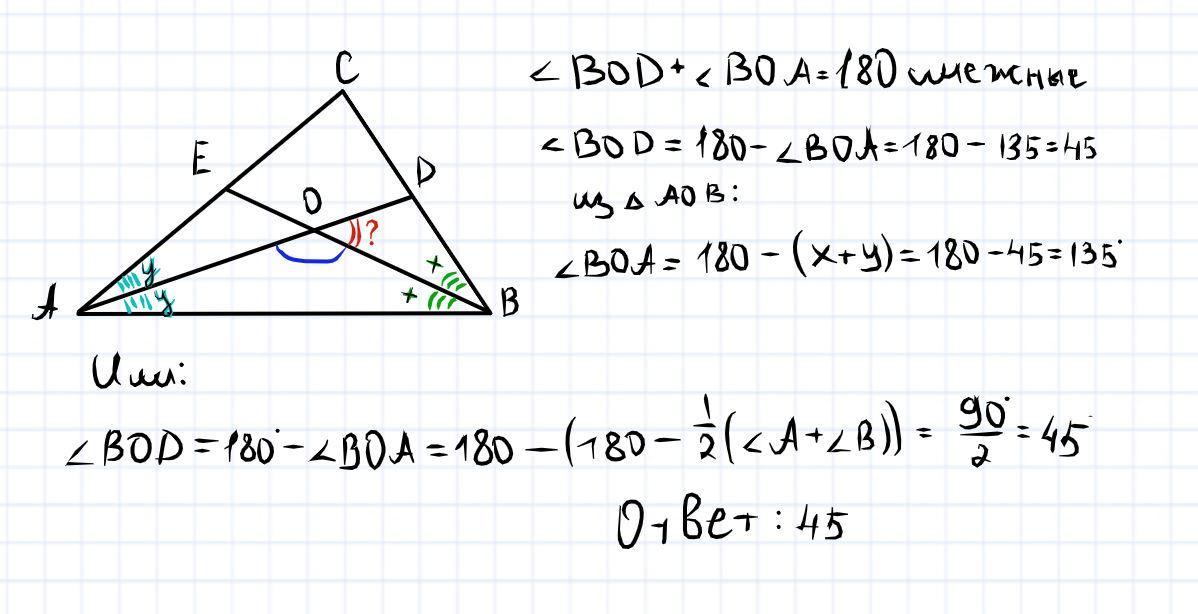 C
E
D
O
?
y
y
x
x
A
B
∠BOD + ∠BOA = 180 смежные
∠BOD = 180 - ∠BOA = 180 - 135 = 45
из △ AOB:
∠BOA = 180 - (x+y) = 180 - 45 = 135°
Или:
∠BOD = 180° - ∠BOA = 180 - (180 - 1/2 (∠A + ∠B)) = 90°/2 = 45
Ответ: 45